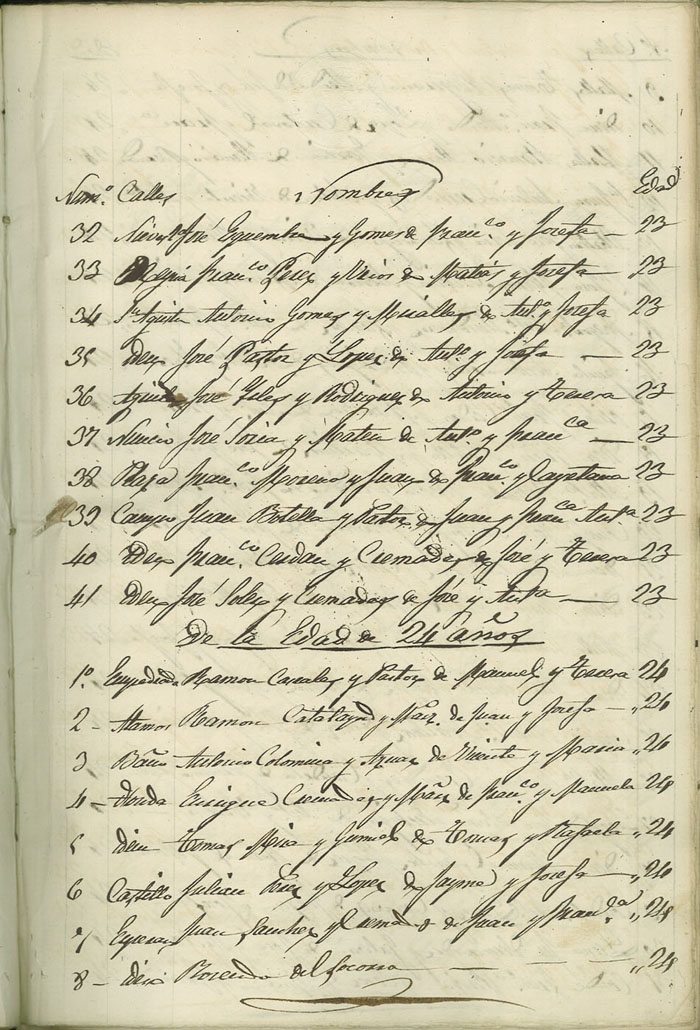 Num.º Calles Nombres Edad
32 José Esquembre y Gomes de Fran.co y Josefa — 23
33 Fran.co Perez y de Matias y Josefa — 23
34 Sn Agustin Antonio Gomes y Miralles de Ant.º y Josefa 23
35 Idem José Pastor y Lopez de Ant.º y Josefa — 23
36 José y Rodriguez de Antonio y Teresa 23
37 José Soria y Mateu de Ant.º y Fran.ca — 23
38 Plaza Fran.co Moreno y Juan de Fran.co y Cayetana 23
39 Campo Juan Botella y Pastor de Juan y Fran.ca Ant.a 23
40 Idem Fran.co Cerdan y Cremades de José y Teresa 23
41 Idem José Soler y Cremades de José y Ant.a — 23
De la Edad de 24 años
1º Empedrada Ramon Canales y Pastor de Manuel y Teresa 24
2 - Alamos Ramon Catalayd y Mãrz. de Juan y Josefa — „24
3 Baño Antonio Colomina y Aznar de Vicente y Maria „24
4 - Honda Enrique Cremades y Mãrz de Fran.co y Manuela 24
5 Idem Tomas Mira y Gumiel de Tomas y Rafaela „24
6 Castillo Julian Perez y Lopez de Jayme y Josefa — „24
7 Juan Sanchez y Cremades de Juan y Fran.ca „24
8 - Idem Rosendo del Socorro — — — „24